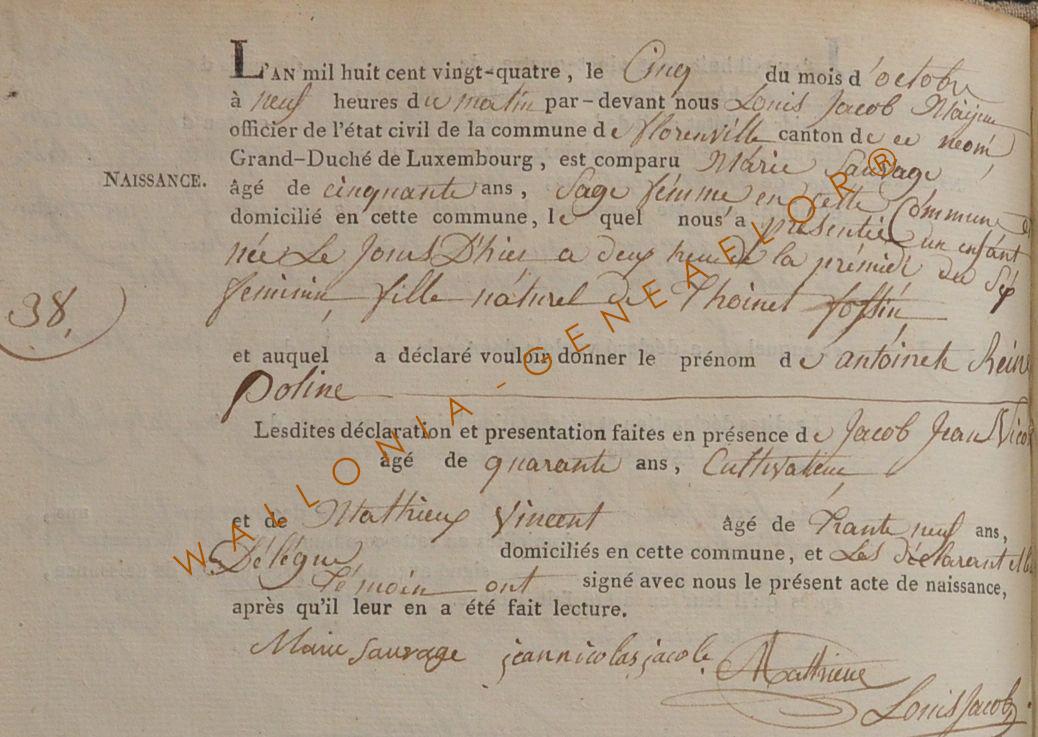 L'AN mil huit cent vingt-quatre, le Cinq du mois d'octobre
à neuf heures du matin par-devant nous Louis Jacob
officier de l'état civil de la commune de florenville canton de ce
Grand-Duché de Luxembourg, est comparu Marie Sauvage
NAISSANCE.
âgé de cinquante ans, Sage femme en cette Commune
domicilié en cette commune, le quel nous a presentée un enfant
née Le Jours D'hier a deux heur de la
feminin fille naturel de Thoinet
38.
et auquel a déclaré vouloir donner le prénom de antoinete Reine
Poline
Lesdites déclaration et presentation faites en présence de Jacob Jean Nicolas
âgé de quarante ans, Cultivateur
et de Mathieux Vincent âgé de Trante neuf ans,
domiciliés en cette commune, et Les déclarant
Témoin ont signé avec nous le présent acte de naissance,
après qu'il leur en a été fait lecture.
Marie Sauvage jean nicolas jacob Mathieux
Louis Jacob
WALLONIA - GENEAELOR®